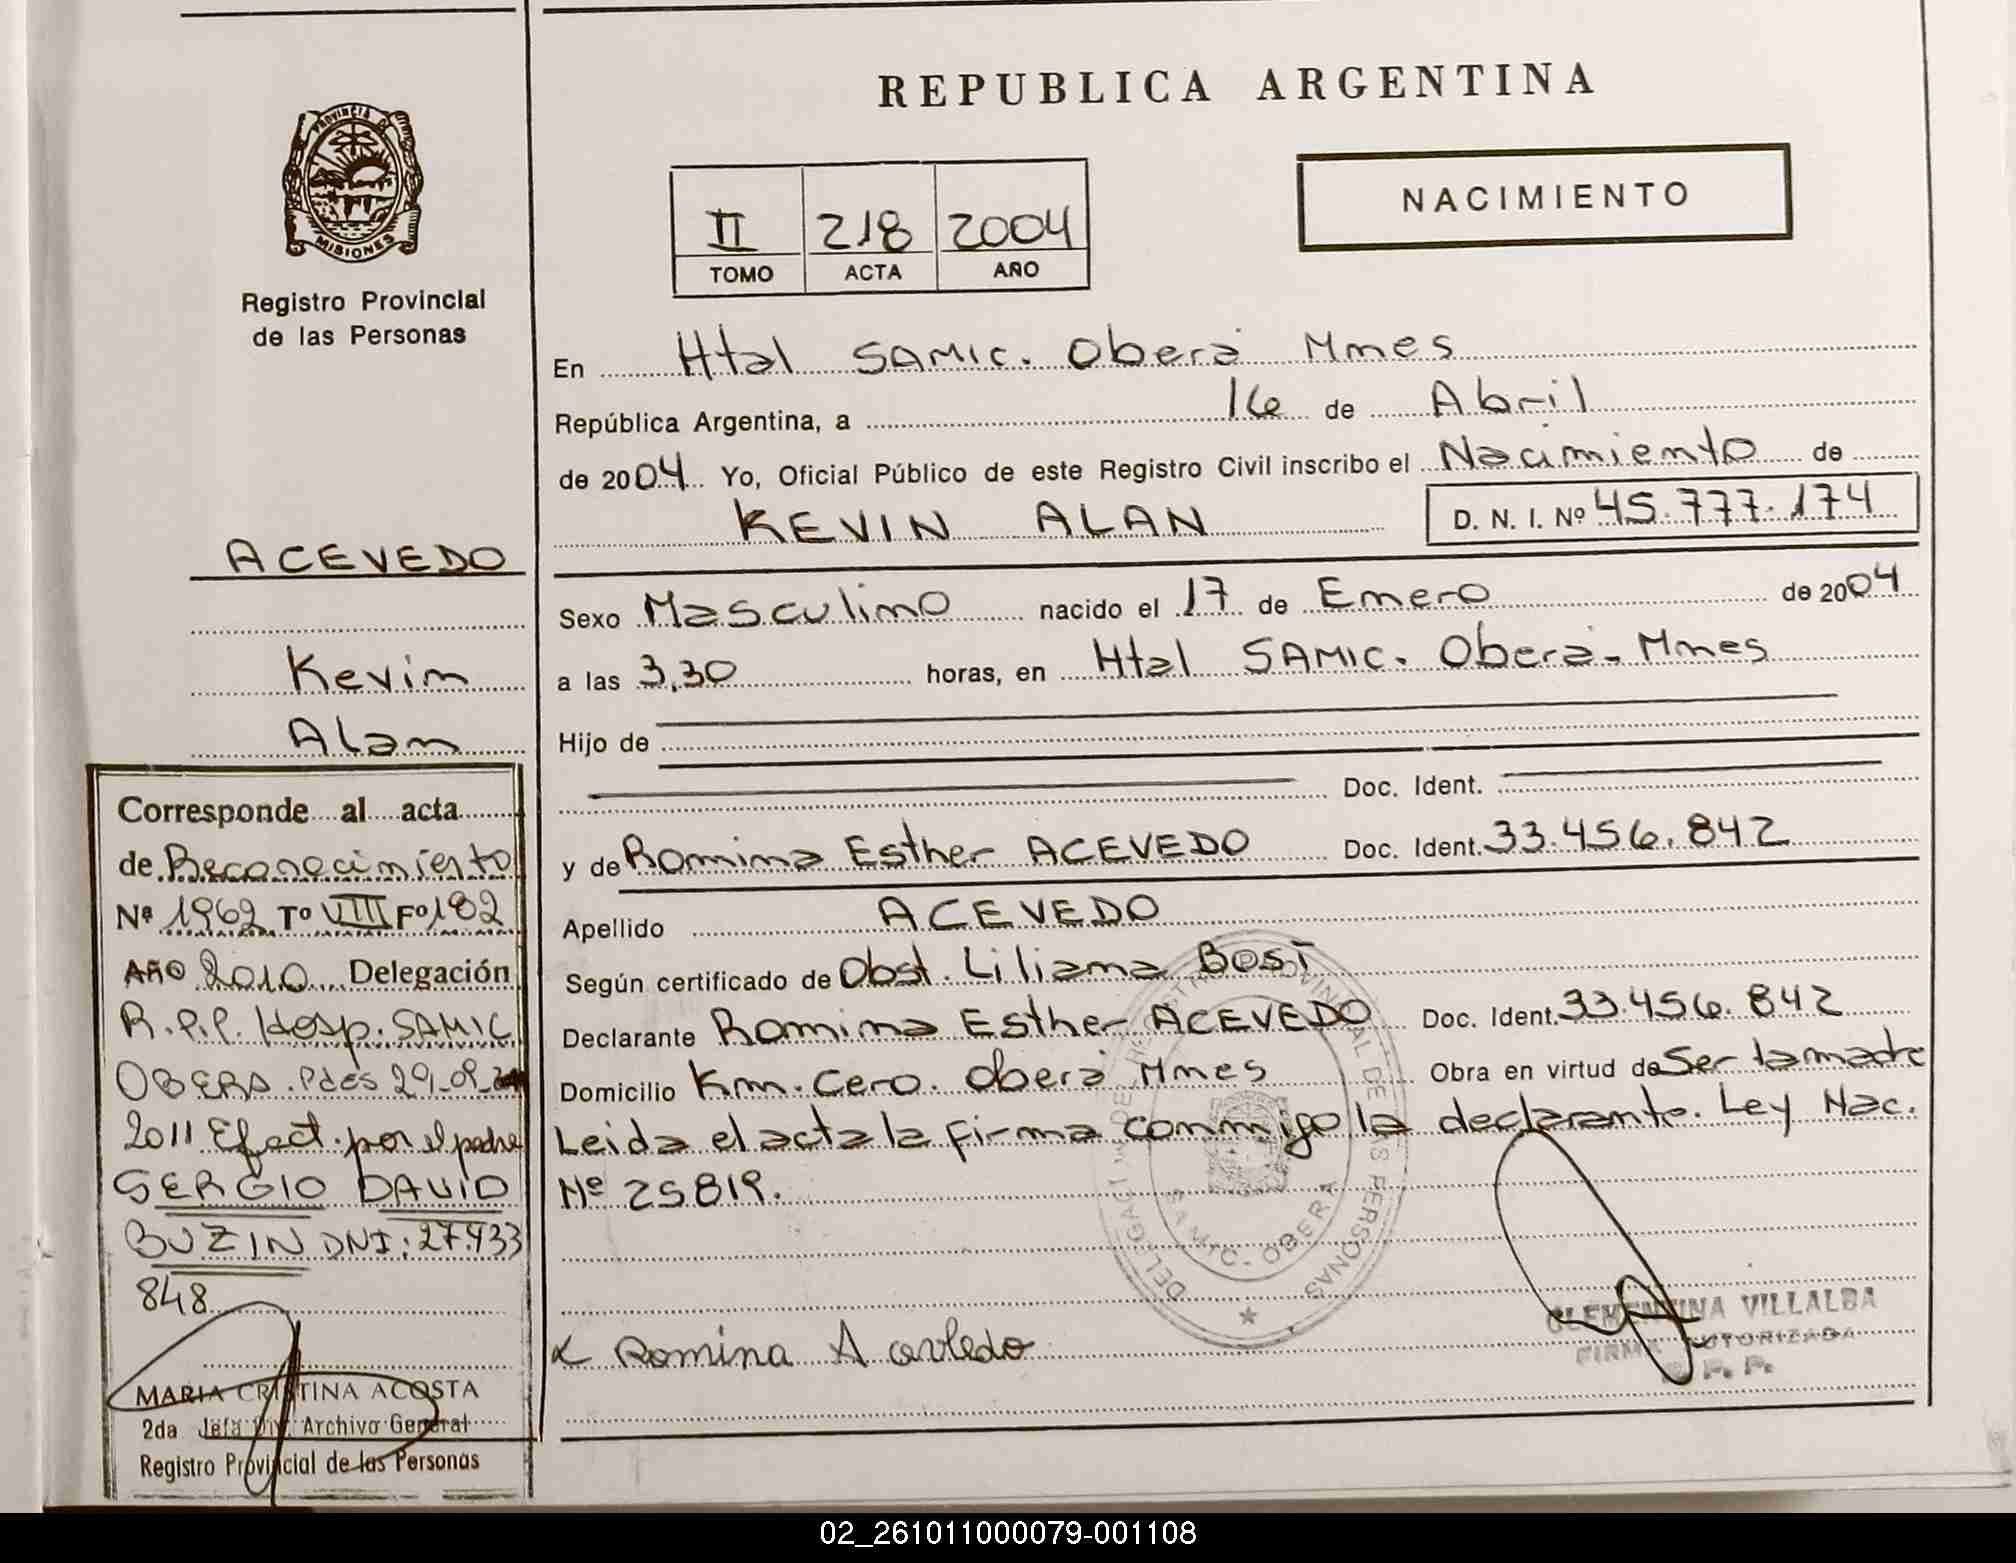 PROVINCIA DE
MISIONES
Registro Provincial
de las Personas
ACEVEDO
Kevin
Alan
Corresponde al acta
de Reconocimiento
Nº 1962 Tº VIII Fº 182
Año 2010 Delegación
R.P.P. Hosp. SAMIC
OBERA. Pdes 29-09-
2011 Efect. por el padre
SERGIO DAVID
BUZIN DNI: 27.433
848
MARIA CRISTINA ACOSTA
2da Jefa Div. Archivo General
Registro Provincial de las Personas
REPUBLICA ARGENTINA
NACIMIENTO
II 218 2004
TOMO ACTA AÑO
En Htal SAMIC. Oberá Mnes
República Argentina, a 16 de Abril
de 2004 Yo, Oficial Público de este Registro Civil inscribo el Nacimiento de
KEVIN ALAN D. N. I. Nº 45.777.174
Sexo Masculino nacido el 17 de Enero de 2004
a las 3,30 horas, en Htal SAMIC. Oberá. Mnes
Hijo de
Doc. Ident.
y de Romina Esther ACEVEDO Doc. Ident. 33.456.842
Apellido ACEVEDO
Según certificado de Obst. Liliana Bosi
Declarante Romina Esther ACEVEDO Doc. Ident. 33.456.842
Domicilio Km. Cero. Oberá Mnes Obra en virtud de Ser la madre
Leida el acta la firma conmigo la declarante. Ley Nac.
Nº 25819.
SAMIC - OBERA
Romina Acevedo
CLEMENTINA VILLALBA
FIRMA AUTORIZADA
R. P. P.
02_261011000079-001108